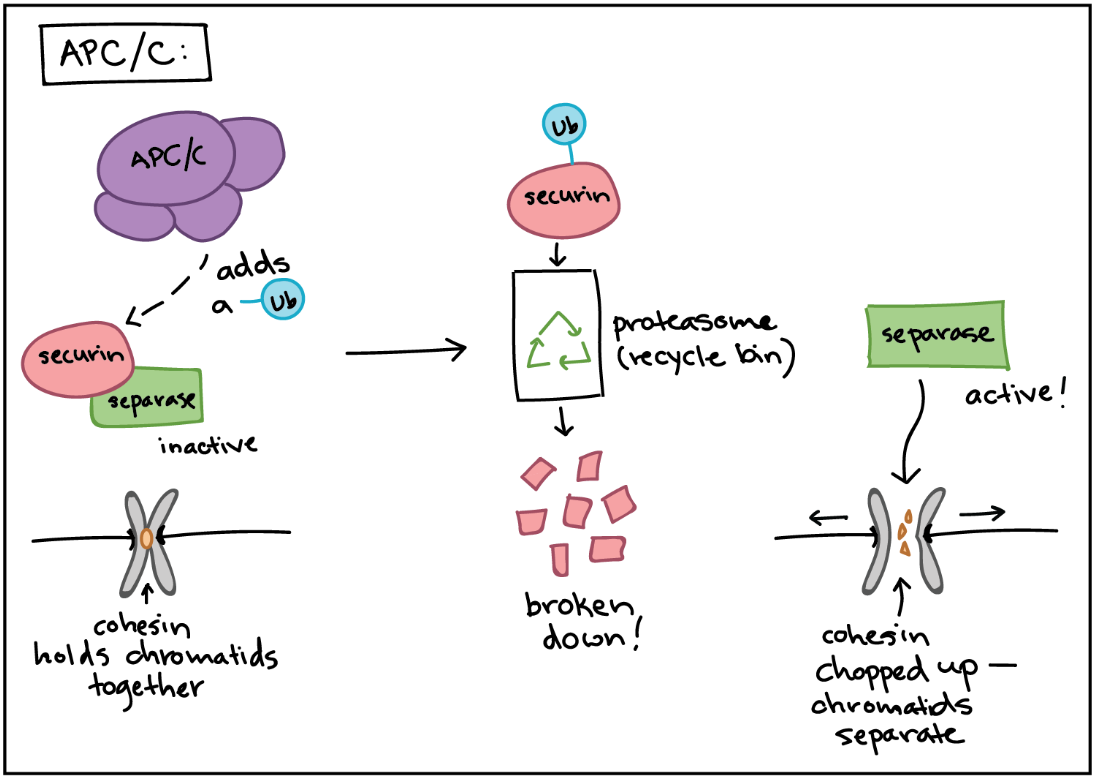 APC/C:
APC/C
adds
a Ub
securin
separase
inactive
cohesin
holds chromatids
together
Ub
securin
proteasome
(recycle bin)
broken
down!
separase
active!
cohesin
chopped up —
chromatids
separate